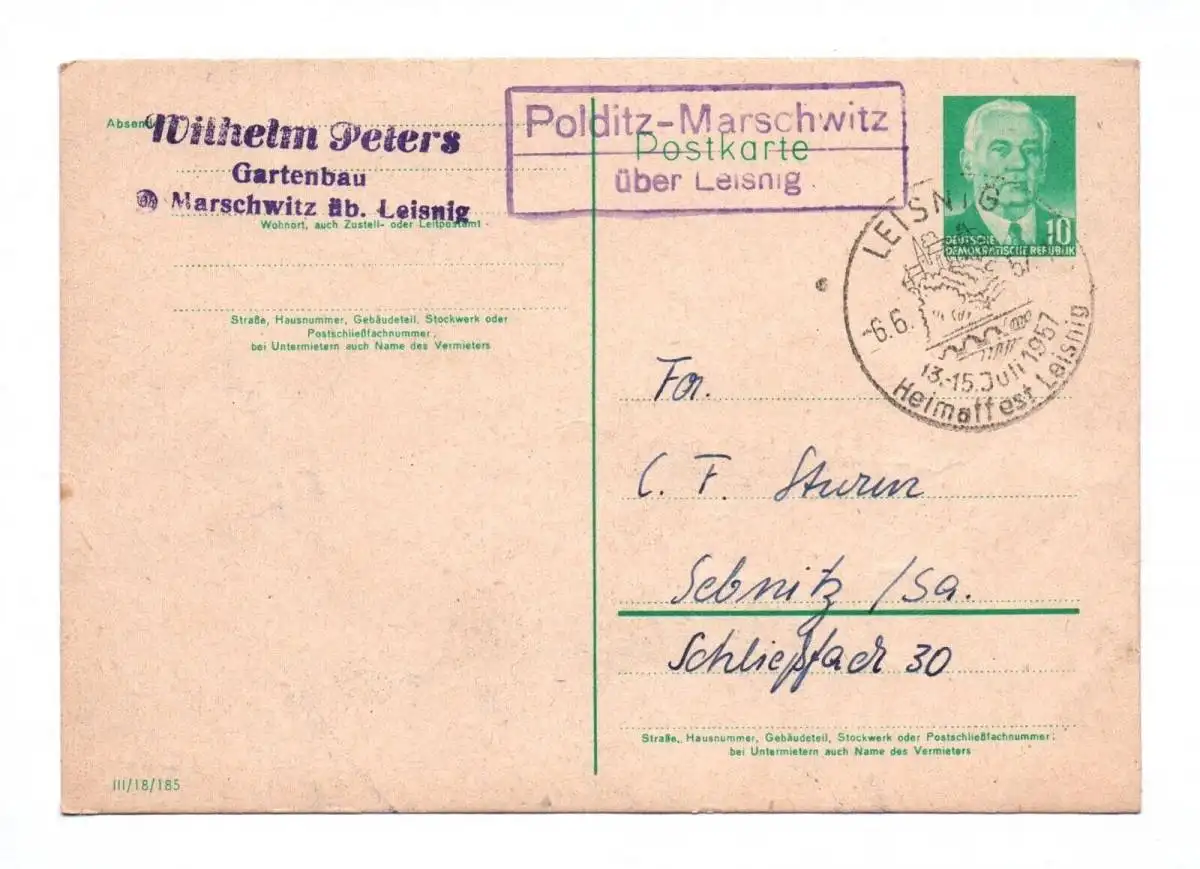 Absen
Wilhelm Peters
Gartenbau
Marschwitz üb. Leisnig
Wohnort, auch Zustell- oder Leitpostamt
Straße, Hausnummer, Gebäudeteil, Stockwerk oder
Postschließfachnummer;
bei Untermietern auch Name des Vermieters
III/18/185
Polditz-Marschwitz
Postkarte
über Leisnig
10
DEUTSCHE
DEMOKRATISCHE REPUBLIK
LEISNIG
-6.6.57
13.-15. Juli 1957
Heimatfest Leisnig
Fa.
C. F. Sturm
Sebnitz / Sa.
Schließfach 30
Straße, Hausnummer, Gebäudeteil, Stockwerk oder Postschließfachnummer;
bei Untermietern auch Name des Vermieters